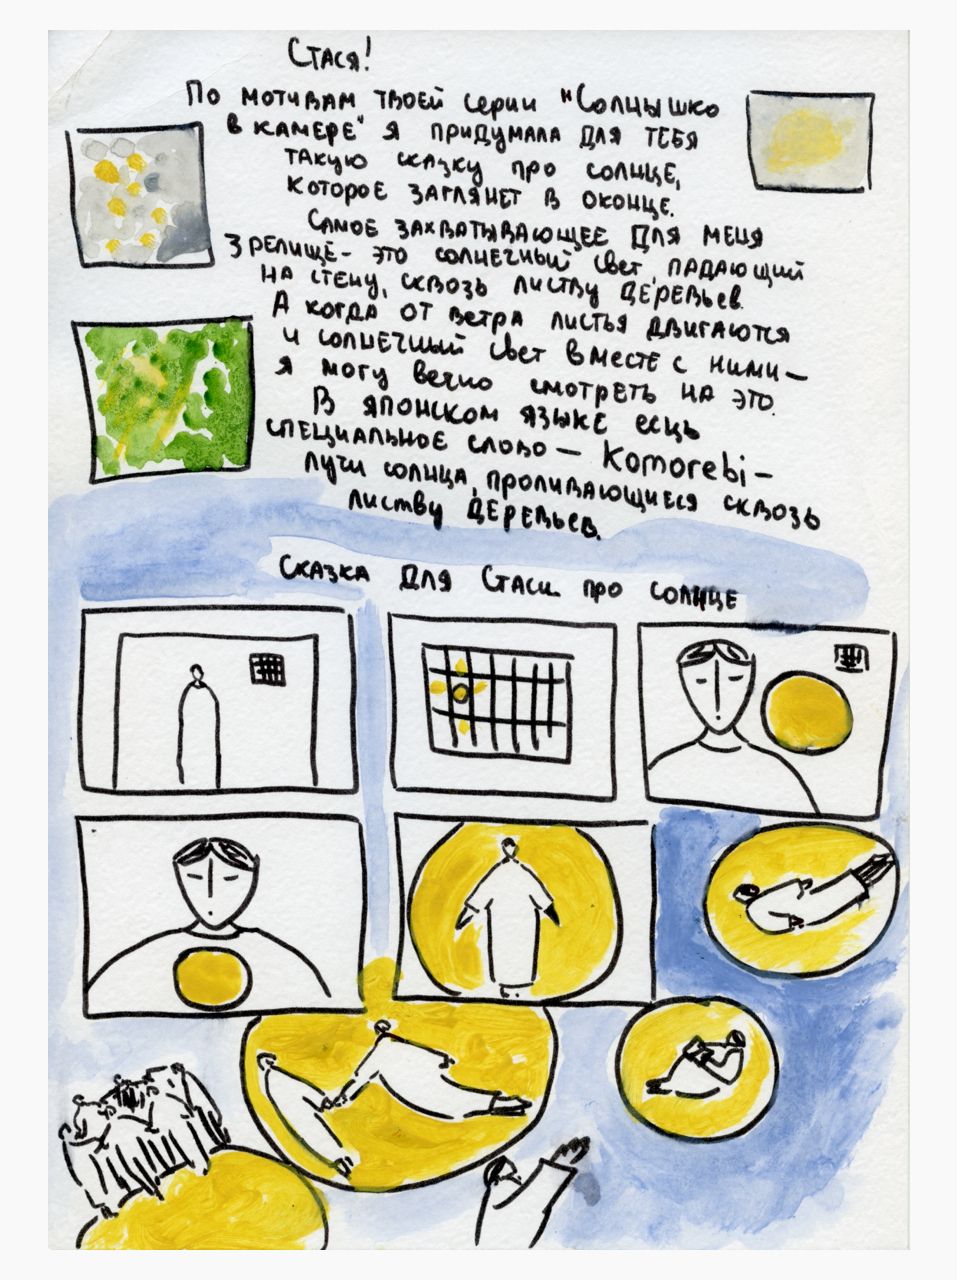 Стася!
По мотивам твоей серии "Солнышко
в камере" я придумала для тебя
такую сказку про солнце,
которое заглянет в оконце.
Самое захватывающее для меня
зрелище - это солнечный свет, падающий
на стену, сквозь листву деревьев.
А когда от ветра листья двигаются
и солнечный свет вместе с ними —
я могу вечно смотреть на это.
В японском языке есть
специальное слово — Komorebi —
лучи солнца, проливающиеся сквозь
листву деревьев.
Сказка для Стаси про солнце